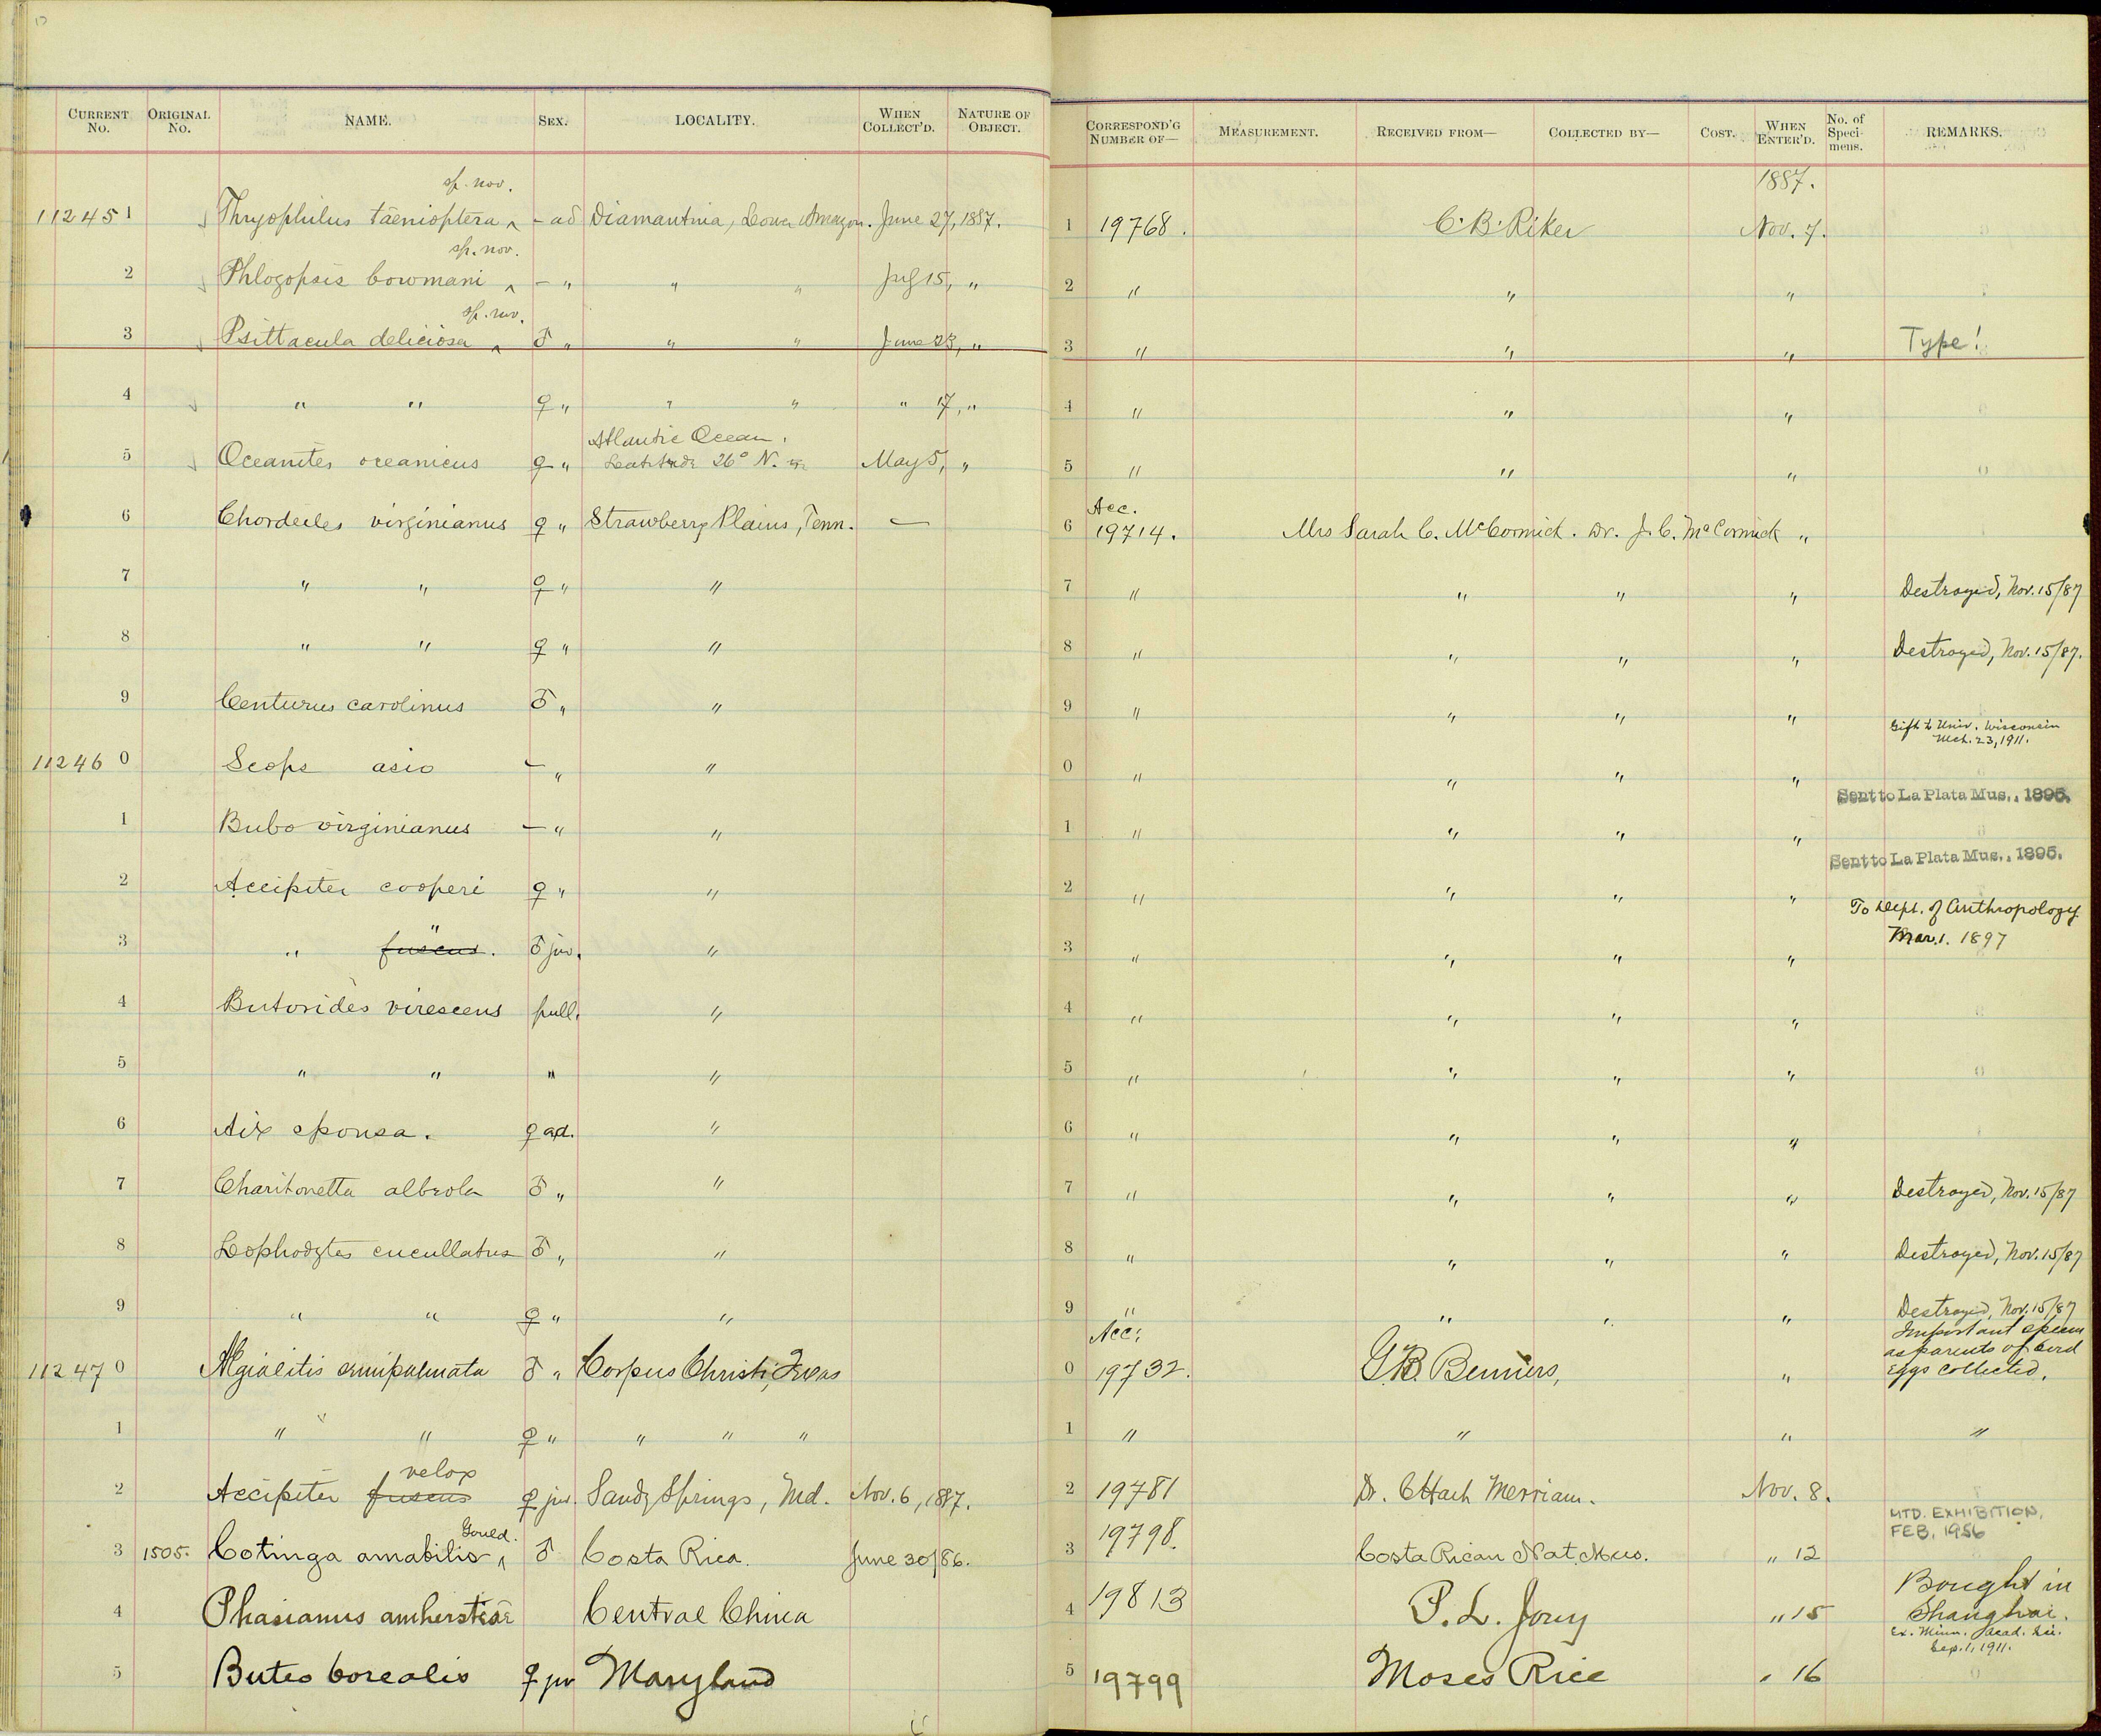 CURRENT No. ORIGINAL No. NAME. SEX. LOCALITY. WHEN COLLECT'D. NATURE OF OBJECT. CORRESPOND'G NUMBER OF— MEASUREMENT. RECEIVED FROM— COLLECTED BY— COST. WHEN ENTER'D. No. of Speci-mens. REMARKS.
sp. nov. 1887.
112451 Thryophilus taenioptera ^ - ad Diamantina, Lower Amazon. June 27, 1887. 1 19768. C. B. Riker Nov. 7.
sp. nov.
2 Phlogopsis bowmani ^ - " " " July 15, " 2 " " "
sp. nov.
3 Psittacula deliciosa ^ ♂ " " " June 23, " 3 " " " Type!
4 " " ♀ " " " " 17, " 4 " " "
Atlantic Ocean.
5 Oceanites oceanicus ♀ " Latitude 26° N. May 5, " 5 " " "
Acc.
6 Chordeiles virginianus ♀ " Strawberry Plains, Tenn. — 6 19714. Mrs Sarah C. McCormick. Dr. J. C. McCormick "
7 " " ♀ " " 7 " " " " Destroyed, Nov. 15/87
8 " " ♀ " " 8 " " " " Destroyed, Nov. 15/87.
9 Centurus carolinus ♂ " " 9 " " " "
Gift to Univ. Wisconsin
Mch. 23, 1911.
112460 Scops asio - " " 0 " " " "
Sent to La Plata Mus., 1895.
1 Bubo virginianus - " " 1 " " " "
Sent to La Plata Mus., 1895.
2 Accipiter cooperi ♀ " " 2 " " " "
To Dept. of Anthropology
Mar. 1. 1897
"
3 " fuscus. ♂ juv. " 3 " " " "
4 Butorides virescens pull. " 4 " " " "
5 " " " " 5 " " " "
6 Aix sponsa. ♀ ad. " 6 " " " "
7 Charitonetta albeola ♂ " " 7 " " " " Destroyed, Nov. 15/87
8 Lophodytes cucullatus ♂ " " 8 " " " " Destroyed, Nov. 15/87
9 " " ♀ " " 9 " " " " Destroyed, Nov. 15/87
Acc. Important specim
as parents of bird
112470 Ægialitis semipalmata ♂ " Corpus Christi, Texas 0 19732. G. B. Benners, " eggs collected.
1 " " ♀ " " " " 1 " " " "
velox
2 Accipiter fuscus ♀ juv. Sandy Springs, Md. Nov. 6, 1887. 2 19781 Dr. C Hart Merriam. Nov. 8.
MTD. EXHIBITION,
FEB, 1956
Gould.
3 1505. Cotinga amabilis ^ ♂ Costa Rica. June 30/86. 3 19798. Costa Rican Nat. Mus. " 12
4 Phasianus amherstiae Central China 4 19813 P. L. Jouy " 15 Bought in
Shanghai.
Ex. Minn. Acad. Sci.
Sep. 1, 1911.
5 Buteo borealis ♀ juv Maryland 5 19799 Moses Rice " 16